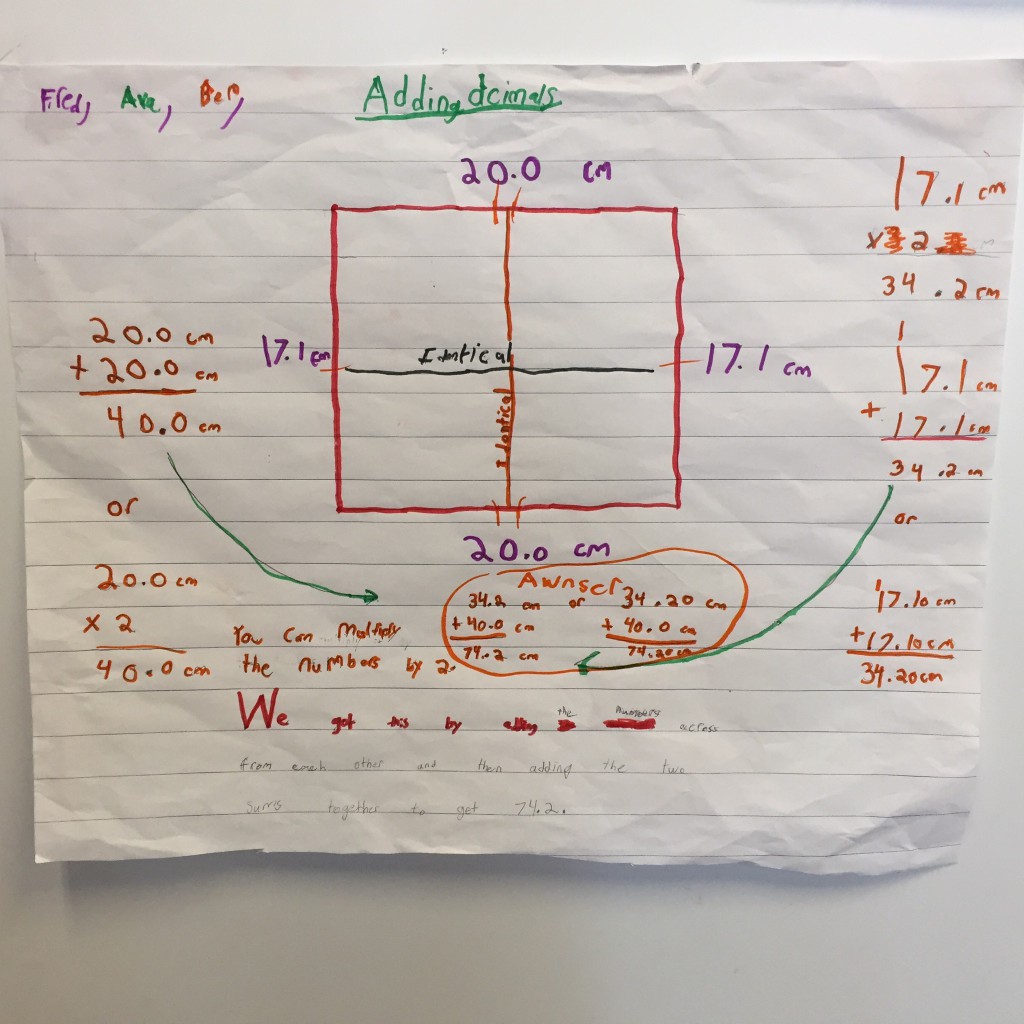 Fred, Ava, Ben,
Adding dcimals
20.0 cm
17.1 cm
x 2
34.2 cm
20.0 cm
+ 20.0 cm
40.0 cm
17.1 cm
Identical
Identical
17.1 cm
1
17.1 cm
+ 17.1 cm
34.2 cm
or
20.0 cm
or
20.0 cm
x 2
40.0 cm
You can Multiply
the numbers by 2.
Awnser
34.2 cm or 34.20 cm
+ 40.0 cm + 40.0 cm
74.2 cm 74.20 cm
17.10 cm
+17.10 cm
34.20 cm
We got this by the numbers across
from each other and then adding the two
sums together to get 74.2.